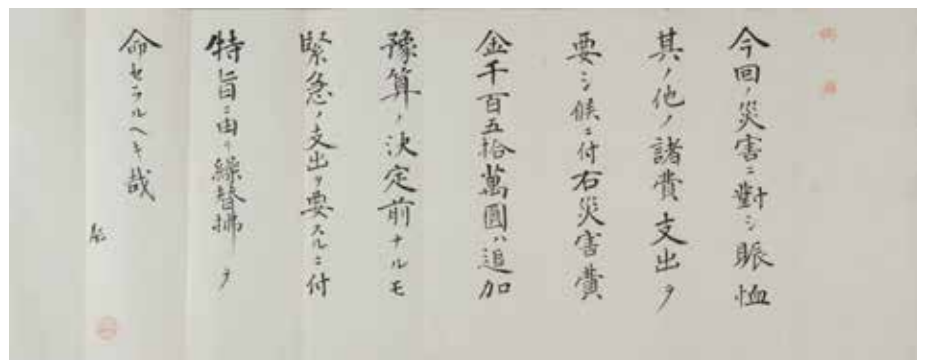 今回ノ災害ニ對シ賑恤
其ノ他ノ諸費支出ヲ
要シ候ニ付右災害費
金千百五拾萬圓ハ追加
豫算ノ決定前ナルモ
緊急ノ支出ヲ要スルニ付
特旨ニ由リ繰替拂ヲ
命セラルヘキ哉